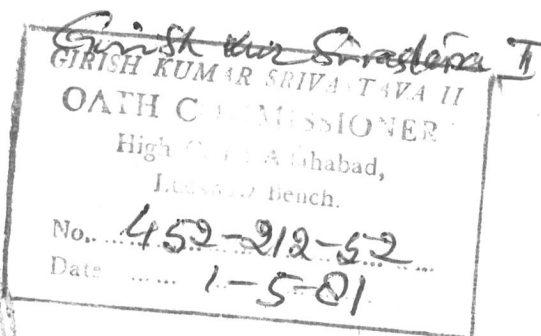 Girish Kur Srivastava II
GIRISH KUMAR SRIVASTAVA II
OATH COMMISSIONER
High Court Allahabad,
Lucknow Bench.
No. 452-212-52
Date 1-5-81